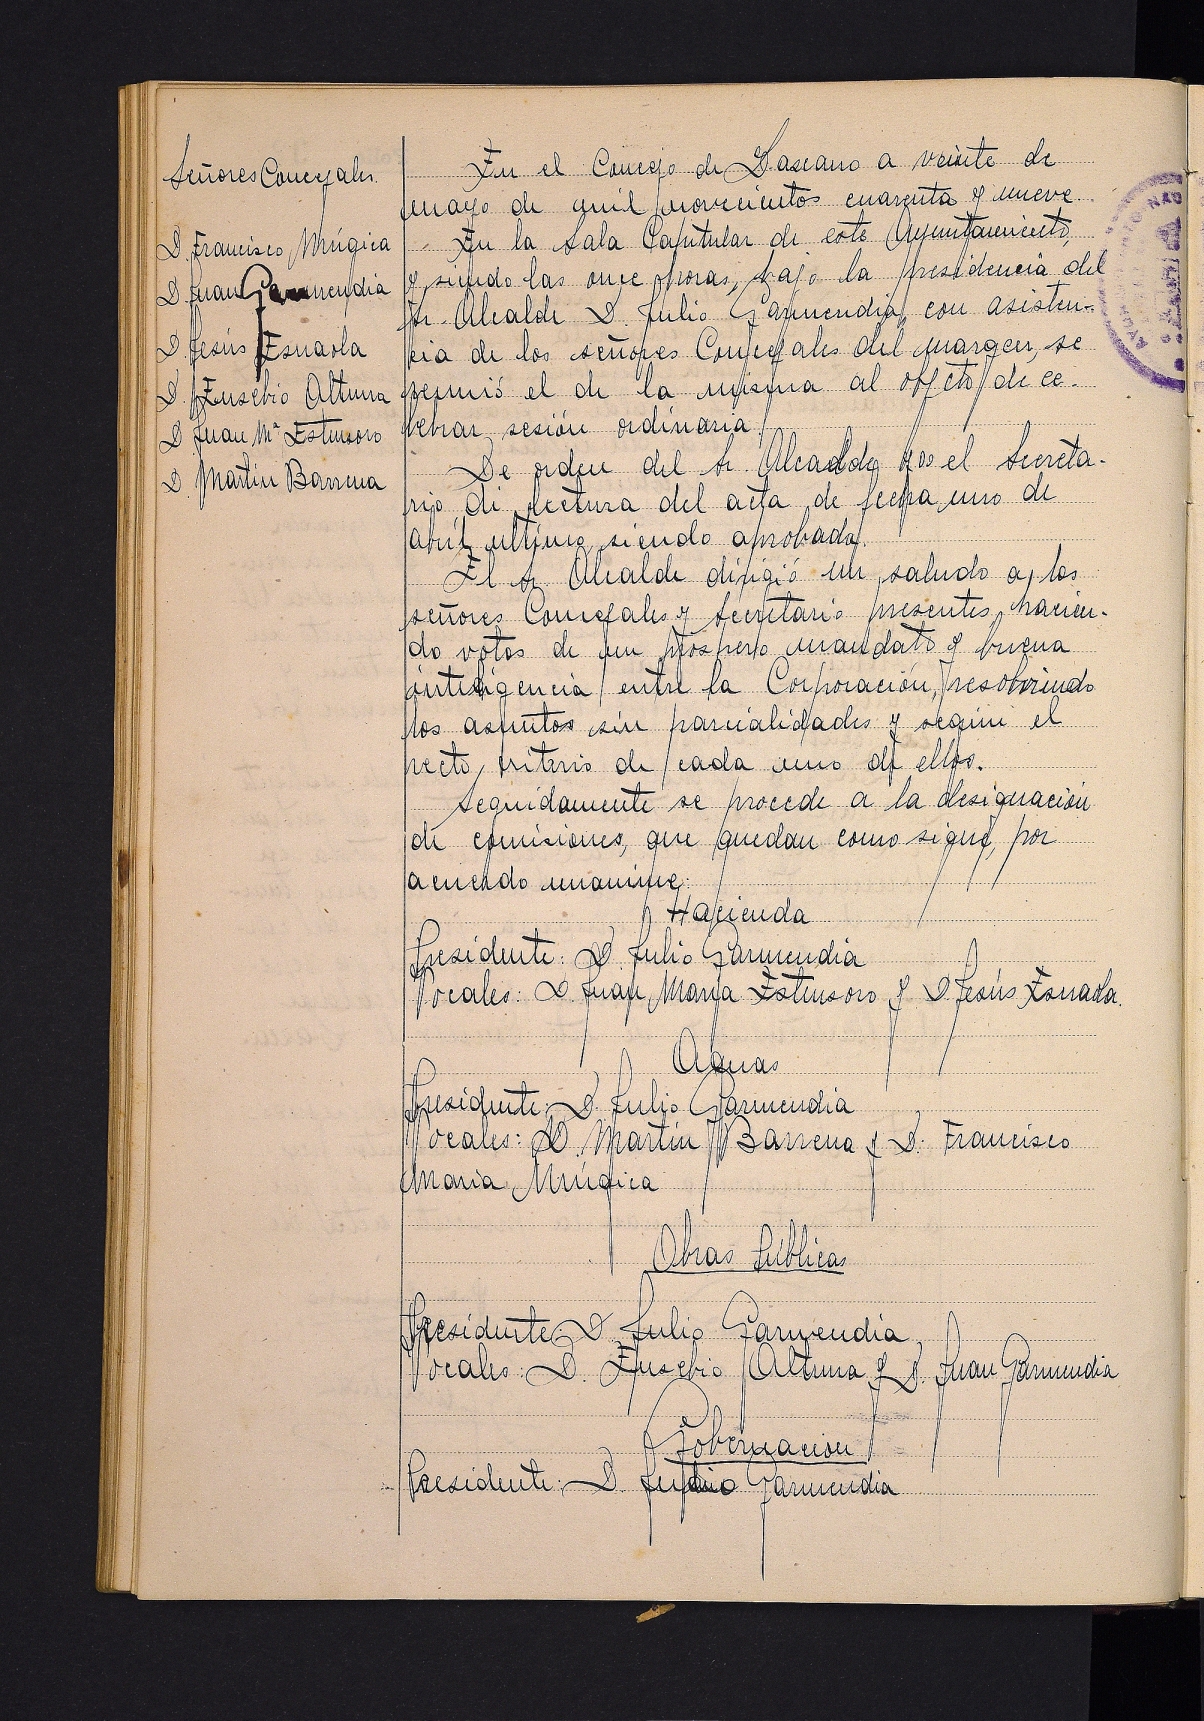 Señores Concejales
D. Francisco Múgica
D. Juan Garmendia
D. Jesús Esnaola
D. Eusebio Altuna
D. Juan Mª Estensoro
D. Martin Barrena
En el Concejo de Lazcano a veinte de
mayo de mil novecientos cuarenta y nueve.
En la Sala Capitular de este Ayuntamiento,
y siendo las once horas, bajo la presidencia del
Sr. Alcalde D. Julio Garmendia, con asisten-
cia de los señores Concejales del margen, se
reunió el de la misma al objeto de ce-
lebrar sesión ordinaria.
De orden del Sr. Alcalde yo el Secreta-
rio di lectura del acta de fecha uno de
abril ultimo, siendo aprobada.
El Sr. Alcalde dirigió un saludo a los
señores Concejales y Secretario presentes, hacien-
do votos de un prospero mandato y buena
inteligencia entre la Corporación, resolviendo
los asuntos sin parcialidades y según el
recto criterio de cada uno de ellos.
Seguidamente se procede a la designación
de comisiones, que quedan como sigue, por
acuerdo unanime:
Hacienda
Presidente: D. Julio Garmendia
Vocales: D. Juan Maria Estensoro y D. Jesús Esnaola.
Aguas
Presidente: D. Julio Garmendia
Vocales: D. Martin Barrena y D. Francisco
Maria Múgica
Obras Públicas
Presidente: D. Julio Garmendia
Vocales: D. Eusebio Altuna y D. Juan Garmendia
Gobernación
Presidente: D. Julio Garmendia